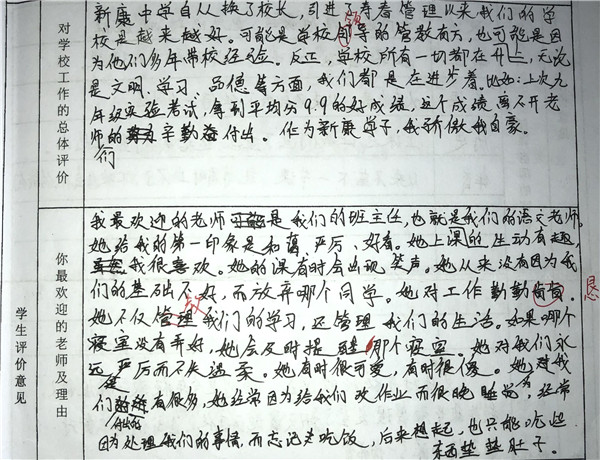 对学校工作的总体评价
新康中学自从换了校长,引进了寿春管理以来,我们的学
校是越来越好。可能是学校领导的管教有方,也可能是因
为他们多年带校经验。反正,学校所有一切都在升上,无论
是文明、学习、品德等方面,我们都是在进步着。比如:上次九
年级实验考试,得到平均分9.9的好成绩,这个成绩离不开老
师们的辛勤付出。作为新康学子,我骄傲我自豪。
学生评价意见
你最欢迎的老师及理由
我最欢迎的老师是我们的班主任,也就是我们的语文老师。
她给我的第一印象是和蔼、严厉、好看。她上课的生动有趣,
我很喜欢。她的课有时会出现笑声。她从来没有因为我
们的基础不好,而放弃哪个同学。她对工作勤勤恳恳。
她不仅管理我们的学习,还管理我们的生活。如果哪个
寝室没有弄好,她会及时提醒那个寝室。她对我们永
远严厉而不失温柔。她有时很可爱,有时很傻。她对我
们付出很多,她经常因为给我们改作业而很晚睡觉,经常
因为处理我们的事情,而忘记去吃饭,后来想起,也只能吃些
东西垫垫肚子。